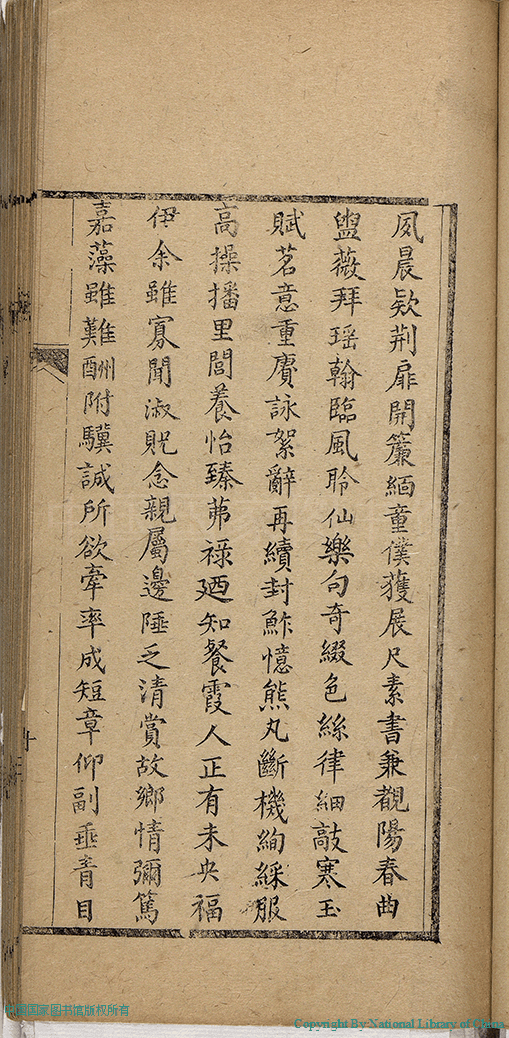 夙晨欵荆扉開簾緬童僕獲展尺素書兼覩陽春曲
盥薇拜瑶翰臨風聆仙樂句奇綴色絲律細敲寒玉
賦茗意重賡詠絮辭再續封鮓憶熊丸斷機絢綵服
高操播里閭養怡臻茀祿廼知餐霞人正有未央福
伊余雖寡聞淑貺念親屬邊陲乏清賞故鄉情彌篤
嘉藻雖難酬附驥誠所欲牽率成短章仰副垂青目
中国国家图书馆版权所有
Copyright By National Library of China